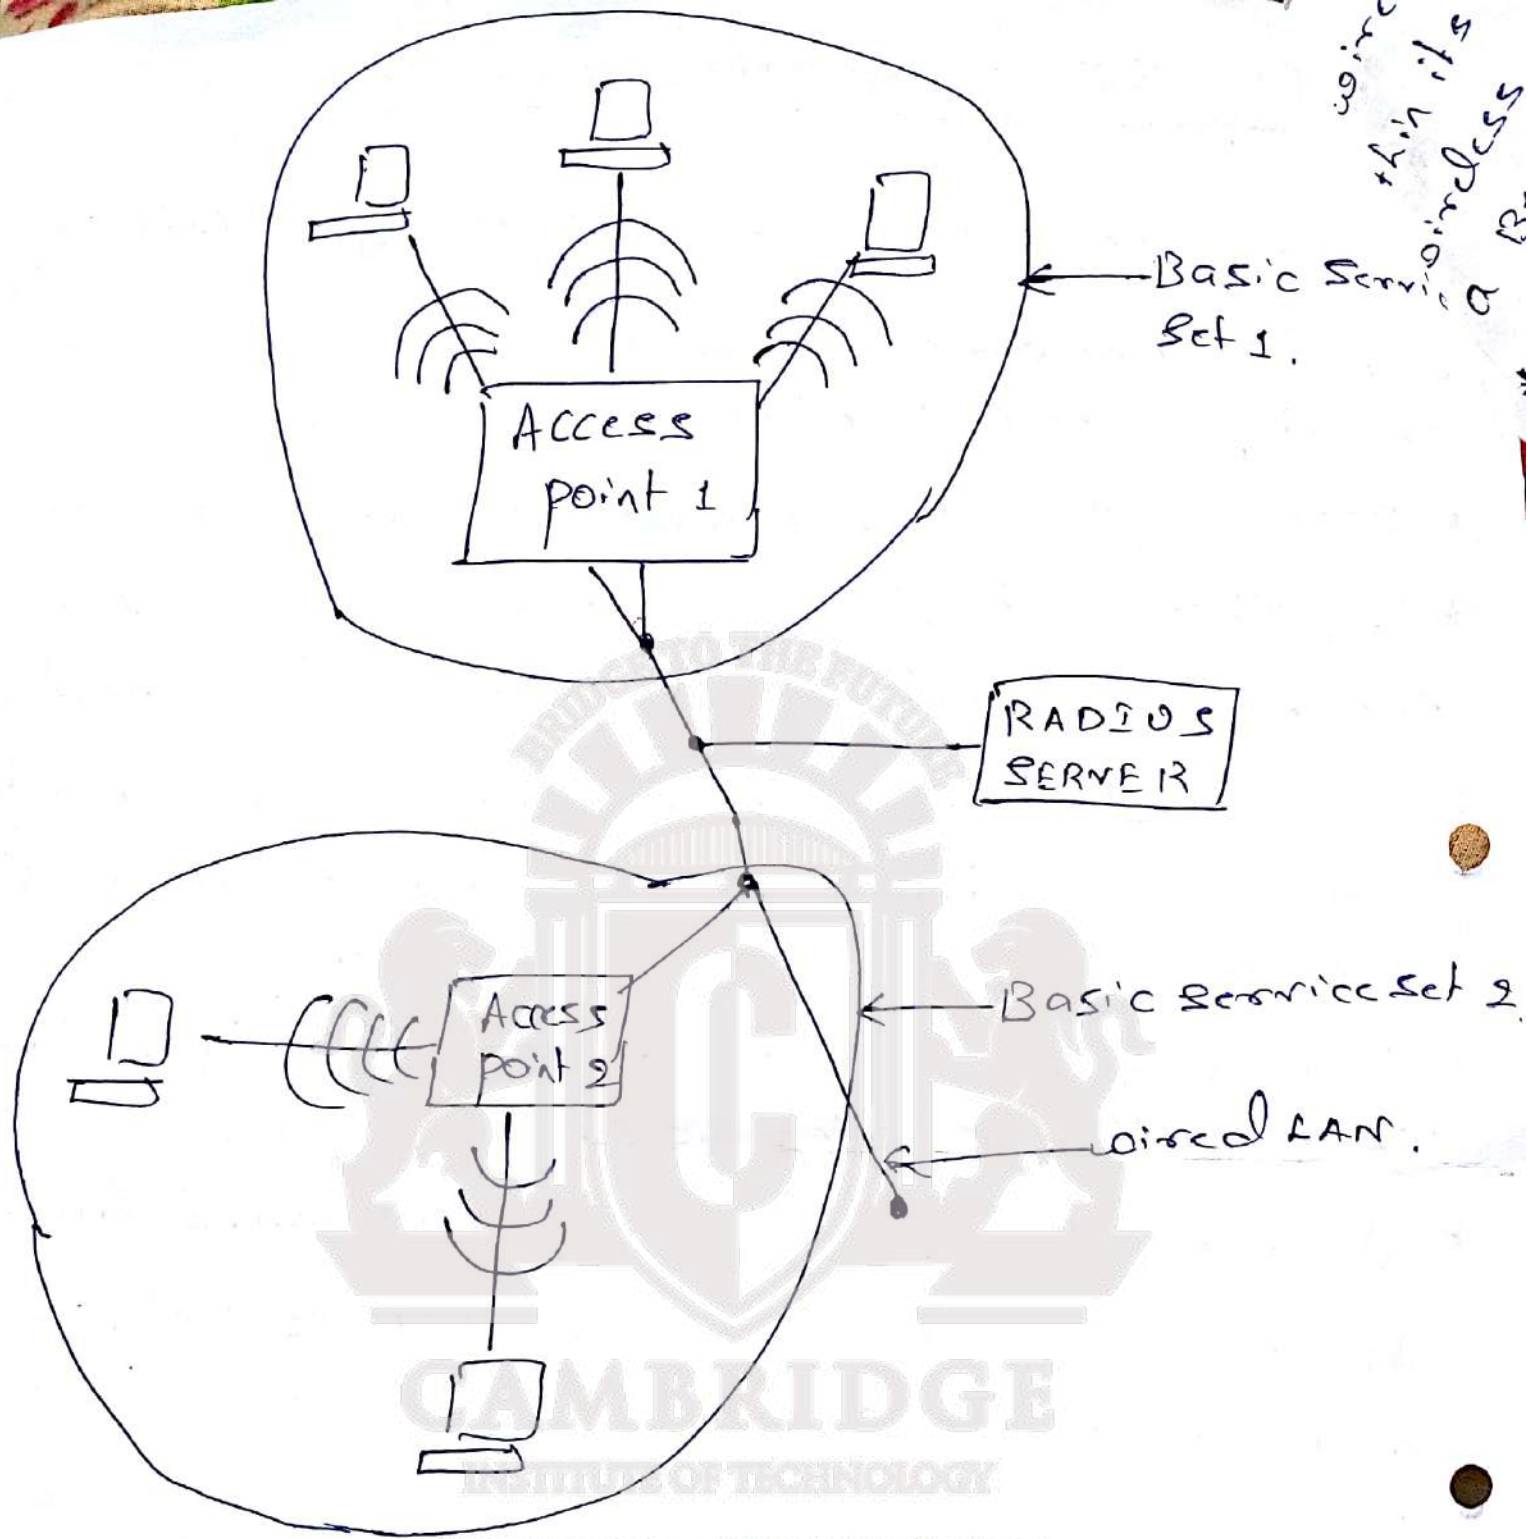 wire
thin its
wireless
Basic Service
Set 1.
Access
point 1
BRIDGE TO THE FUTURE
RADIUS
SERVER
Access
point 2
Basic Service Set 2.
wired LAN.
C
CAMBRIDGE
INSTITUTE OF TECHNOLOGY